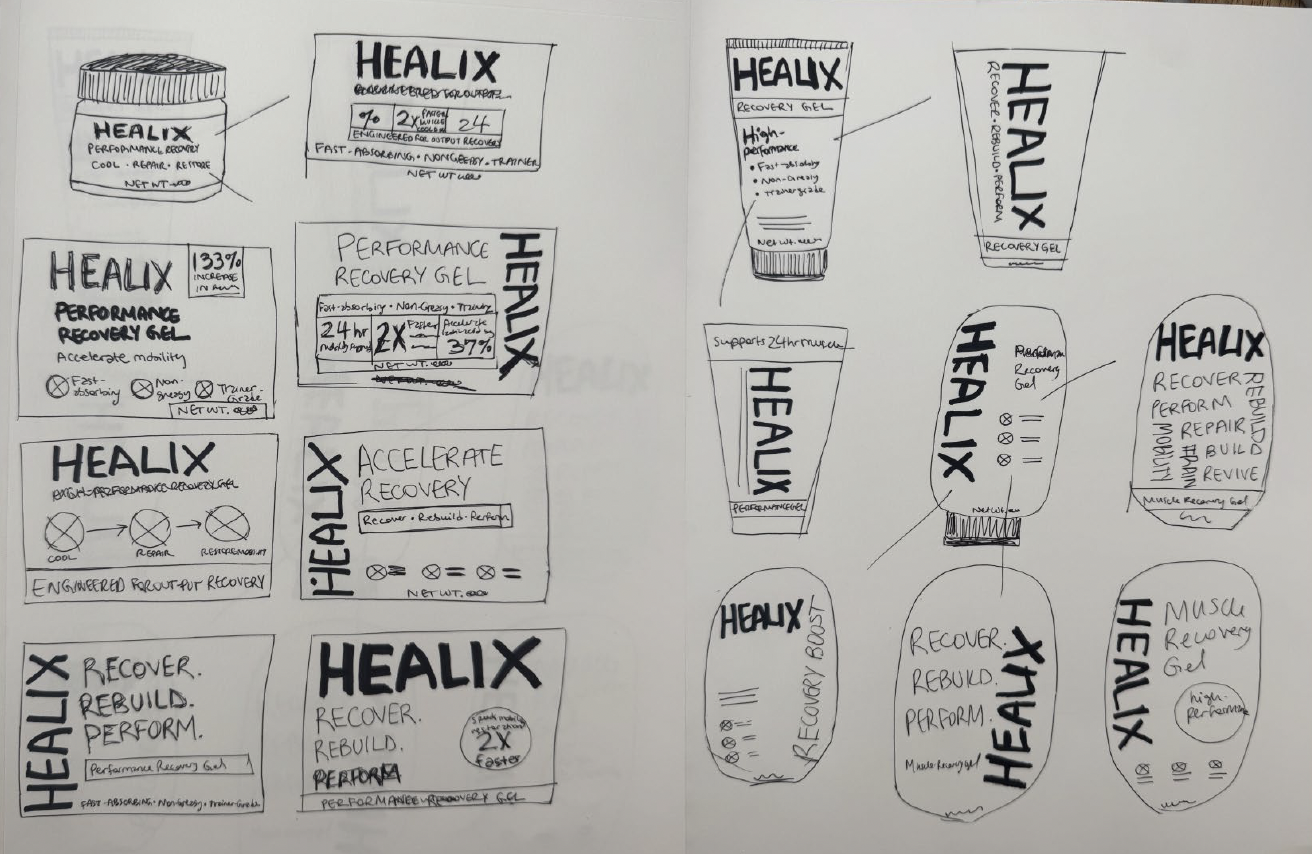 HEALIX
PERFORMANCE RECOVERY
COOL · REPAIR · RESTORE
NET WT.
HEALIX
ENGINEERED FOR OUTPUT
% 2x FASTER 24
ENGINEERED FOR OUTPUT RECOVERY
FAST-ABSORBING · NONGREASY · TRAINER
NET WT.
HEALIX
133%
INCREASE
IN
PERFORMANCE
RECOVERY GEL
Accelerate mobility
Fast-absorbing
Non-greasy
Trainer-Grade
NET WT.
PERFORMANCE
RECOVERY GEL
HEALIX
Fast-absorbing · Non-Greasy · Trainer
24 hr
2X Faster
Accelerate
37%
NET WT.
HEALIX
HIGH-PERFORMANCE RECOVERY GEL
COOL
REPAIR
RESTORE MOBILITY
ENGINEERED FOR OUTPUT RECOVERY
HEALIX
ACCELERATE
RECOVERY
Recover · Rebuild · Perform
NET WT.
HEALIX
RECOVER.
REBUILD.
PERFORM.
Performance Recovery Gel
FAST-ABSORBING · Non-Greasy · Trainer-Grade
HEALIX
RECOVER.
REBUILD.
PERFORM
2X
Faster
PERFORMANCE RECOVERY GEL
HEALIX
RECOVERY GEL
High-
performance
• Fast-absorbing
• Non-Greasy
• Trainer grade
Net wt.
HEALIX
RECOVER · REBUILD · PERFORM
RECOVERY GEL
Supports 24hr muscle
HEALIX
PERFORMANCE GEL
HEALIX
Performance
Recovery
Gel
Net wt.
HEALIX
RECOVER
PERFORM
REPAIR
BUILD
REVIVE
REBUILD
MOBILITY
Muscle Recovery Gel
HEALIX
RECOVERY BOOST
RECOVER.
REBUILD.
PERFORM.
Muscle Recovery gel
HEALIX
HEALIX
Muscle
Recovery
Gel
high-
performance